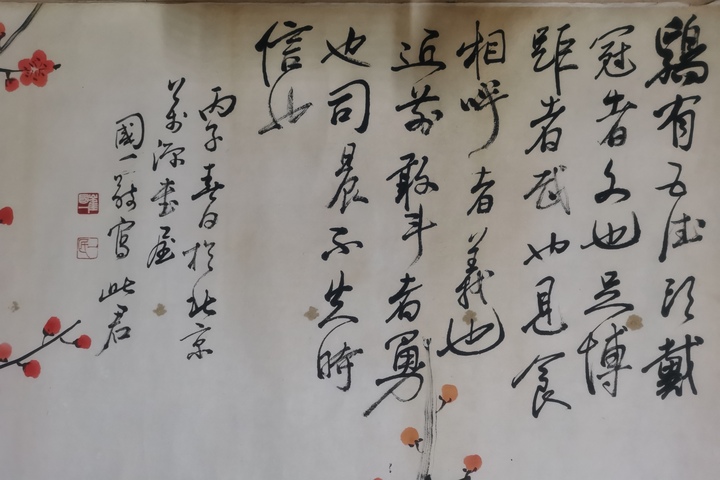 鷄有五德頭戴
冠者文也足博
距者武也見食
相呼者義也
近前敢斗者勇
也司晨不失時
信也
丙子春日於北京
萬源書屋
國一兄 寫此君